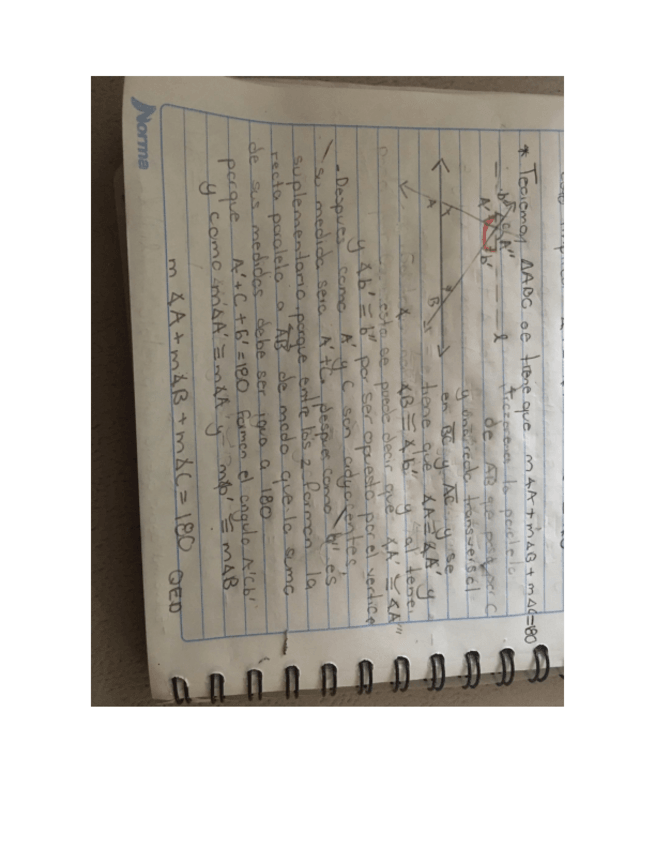 * Teniemos ΔABC se tiene que m∡A + m∡B + m∡C = 180
trazamos la paralela
de AB que pasa por C
y una recta transversal
en BC y AC y se
tiene que ∡A ≅ ∡A' y
∡B ≅ ∡b' y al tener
esto se puede decir que ∡A' ≅ ∡A''
y ∡b' ≅ b'' por ser opuesto por el vertice
- Despues como A' y C son adyacentes
su medida sera A'+C despues como b' es
suplementario porque entre los 2 forman la
recta paralela a AB de modo que la suma
de sus medidas debe ser igua a 180
porque A' + C + b' = 180 forman el angulo A'Cb'
y como m∡A' ≅ m∡A y mb' ≅ m∡B
m∡A + m∡B + m∡C = 180 QED
b'' A''
A' C b' l
A B
Norma